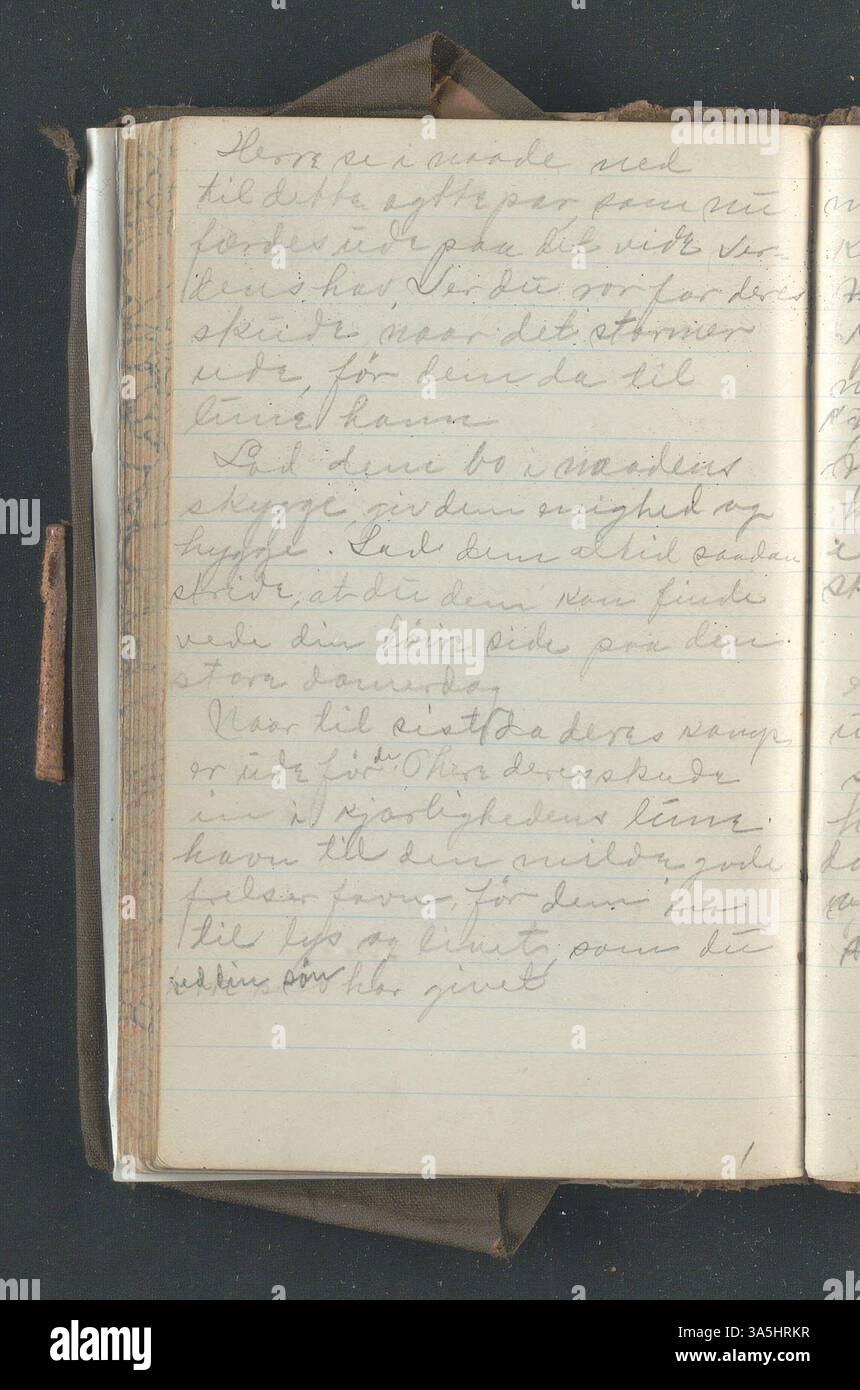 Herre se i naade ned
til dette egtepar, som nu
færdes ude paa det vide Ver-
dens hav, Ver du ror for deres
skude naar det stormer
ude, før dem da til
lune havn
Lad dem bo i naadens
skygge, giv dem enighed og
hygge. Lad dem altid saadan
stride, at du dem kan finde
vede din høire side paa den
store domerdag
Naar til sist da deres kamp
er ude før du O herre deres skude
in i kjærlighedens lune
havn til den milde gode
frelser favn, før dem
til lys og livet, som du
ved din søn har givet
1
alamy
3A5HRKR
www.alamy.com